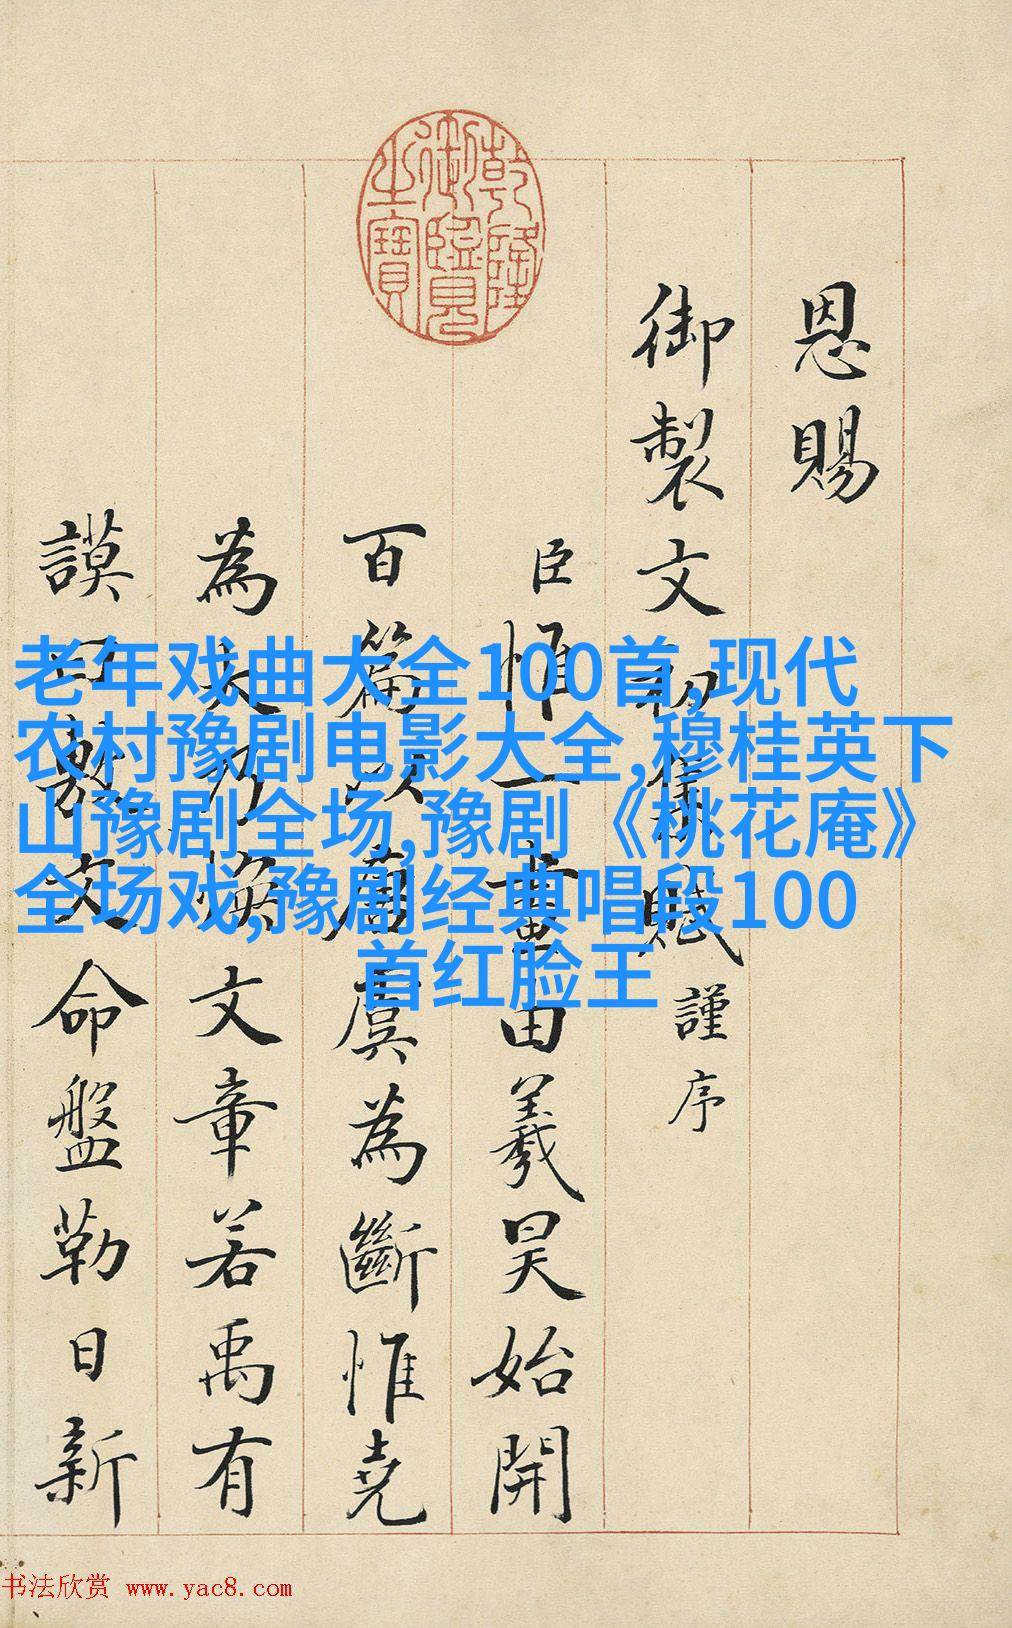 乾隆御覽之寶
恩賜
御製文初集賦謹序
臣惟一畫由羲昊始開
百篇以唐虞為斷惟堯
為大乃煥文章若禹有
謨曰敷文命盤勒日新
老年戏曲大全100首,现代
农村豫剧电影大全,穆桂英下
山豫剧全场,豫剧《桃花庵》
全场戏,豫剧经典唱段100
首红脸王
书法欣赏 www.yac8.com